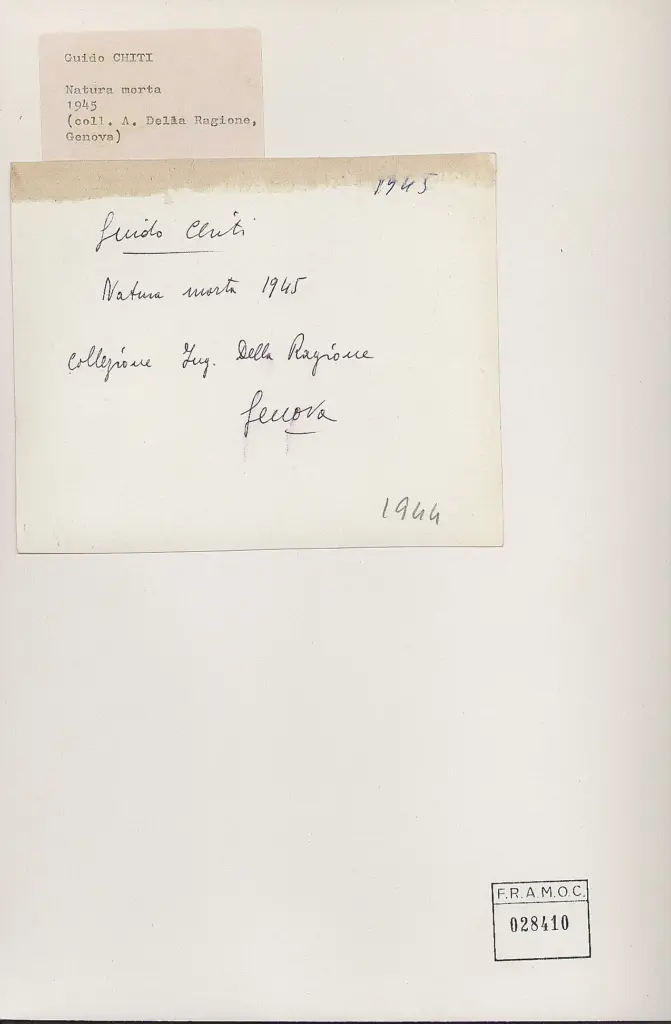 Guido CHITI
Natura morta
1945
(coll. A. Della Ragione,
Genova)
1945
Guido Chiti
Natura morta 1945
collezione Ing. Della Ragione
Genova
1944
F.R.A.M.O.C.
028410